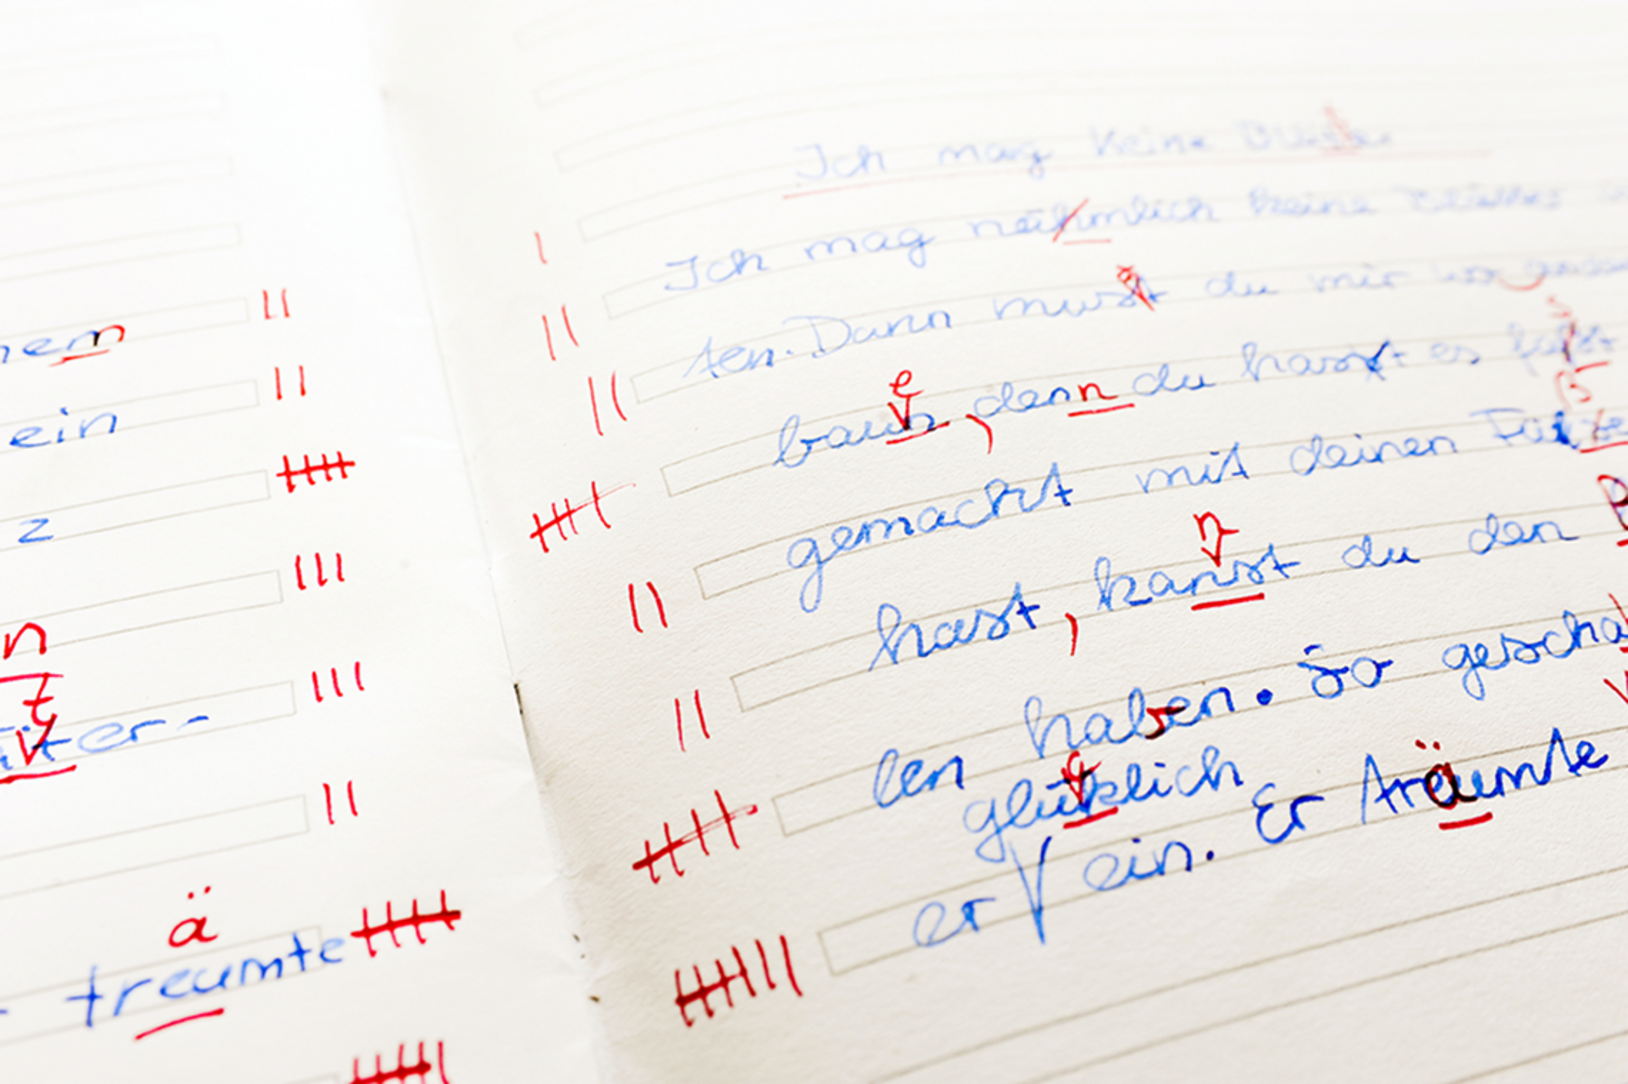 nem
ein
z
n
t
ter-
ä
treumte
Ich mag keine
Ich mag nähmlich keine
ten. Dann must du mir
e
bauh, denn du hast es
gemacht mit deinen
n
hast, kanst du den
len haben. So gescha
c
glüklich
er ein. Er träumte